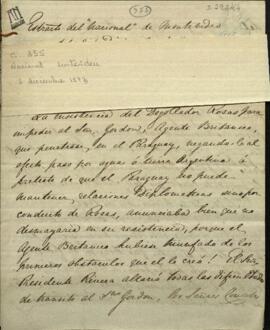 Estracto del "Nacional" de Montevideo
253
C. 855
Nacional Montevideo
2 diciembre 1842
La insistencia del Degollador Rosas para
impedir al Sen. Gordon, Agente Britanico,
que penetrase en el Paraguay, negandole al
efecto, paso por aguas ó tierra Argentina á
pretesto de que el Paraguay no puede
mantener relaciones Diplomaticas sino por
conducto de Rosas, anunciaba bien que no
desmayaria en su resistencia, porque el
Agente Britanico hubiese triunfado de los
primeros obstaculos que le creó! El Sor.
Presidente Rivera allanó todas las dificultades
de transito al Sor. Gordon, los Señores